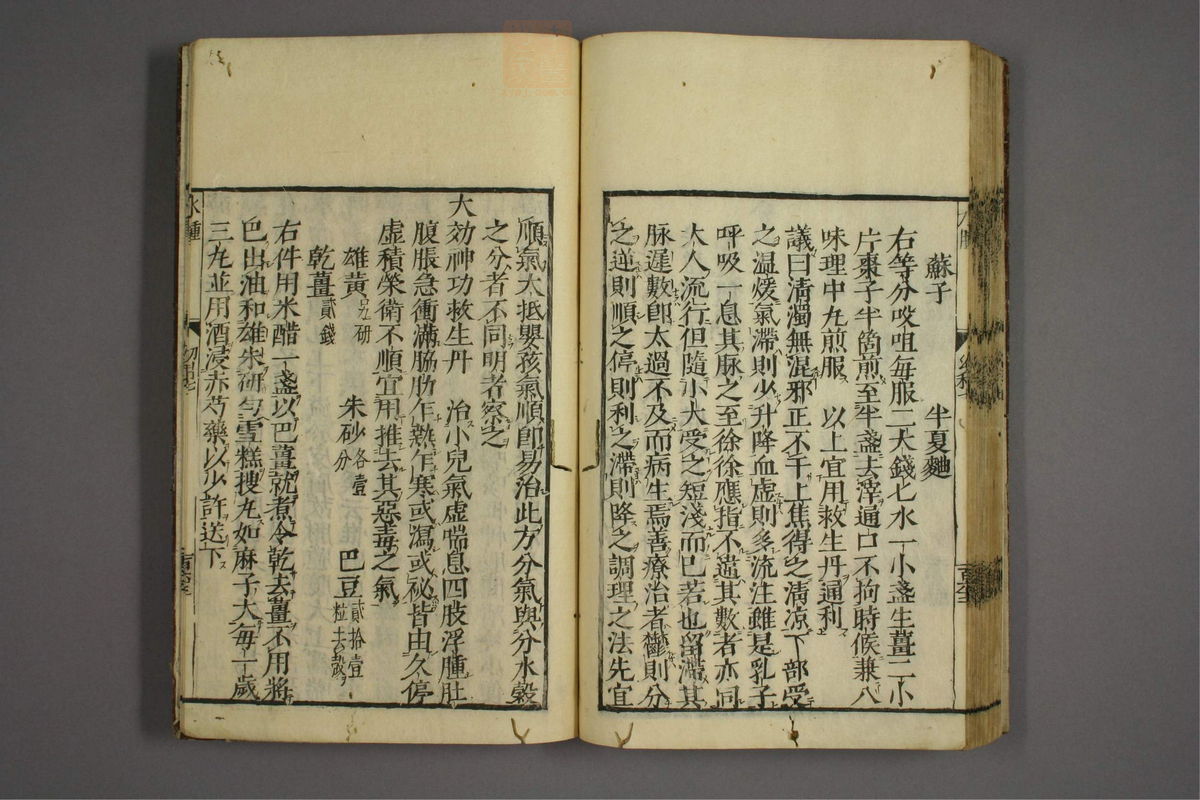 蘇子　半夏麯
右等分㕮咀每服二大錢匕水一小盞生薑二小
片棗子半箇煎至半盞去滓通口不拘時候兼八
味理中丸煎服　以上宜用救生丹通利
議曰清濁無混邪正不干上焦得之清凉下部受
之温煖氣滯則少升降血虛則多流注雖是乳子
呼吸一息其脉之至徐徐應指不違其數者亦同
大人流行但隨小大受之短淺而已若也留滯其
脉遲數即太過不及而病生焉善療治者欝則分
之逆則順之停則利之滯則降之調理之法先宜
順氣大抵嬰孩氣順即易治此方分氣與分水穀
之分者不同明者察之
大効神功救生丹　治小兒氣虛喘息四肢浮腫肚
腹脹急衝滿脇肋乍熱乍寒或瀉或祕皆由久停
虛積榮衛不順宜用推去其惡毒之氣
雄黃研　朱砂各壹分　巴豆貳拾壹粒去殼
乾薑貳錢
右件用米醋一盞以巴薑就煮令乾去薑不用將
巴出油和雄朱研勻雪糕搜丸如麻子大每一歲
三丸並用酒浸赤芍藥以少許送下
水腫